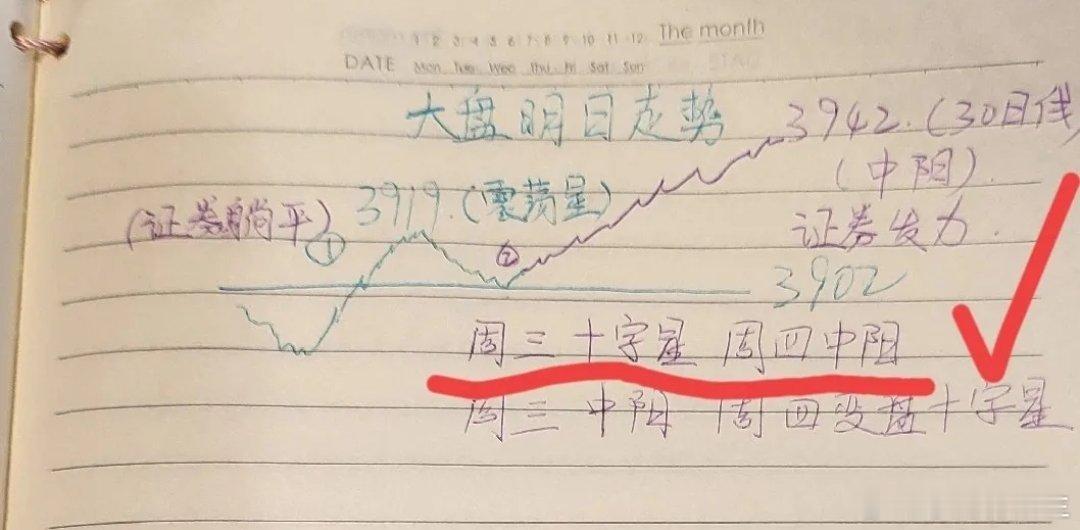 The month
1 2 3 4 5 6 7 8 9 10 11 12
DATE Mon Tue Wed Thu Fri Sat Sun
大盘明日走势
3942.(30日线)
(中阳).
(证券躺平) 3919.(震荡星)
①
证券发力.
②
3902
周三十字星 周四中阳
周三中阳 周四变盘十字星